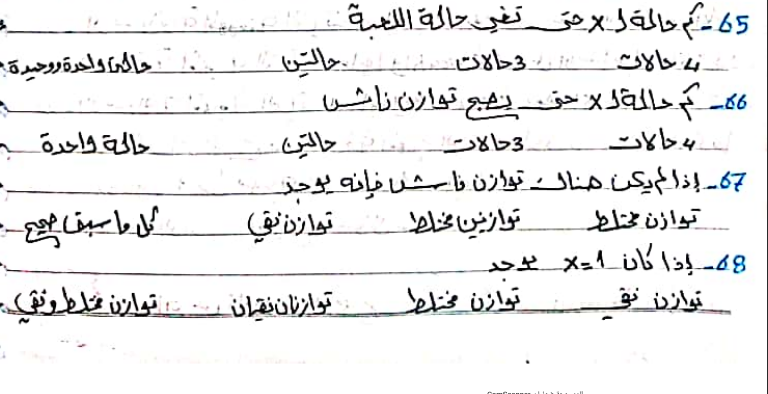 65- كم حالة لـ x حتى تغير حالة اللعبة
4 حالات 3 حالات حالتين حالة واحدة ووحيدة
66- كم حالة لـ x حتى يصبح توازن ناش
4 حالات 3 حالات حالتين حالة واحدة
67- إذا لم يكن هناك توازن ناش فإنه يوجد
توازن مختلط توازنين مختلط توازن نقي كل ما سبق صحيح
68- إذا كان x=1 يوجد
توازن نقي توازن مختلط توازنان نقيان توازن مختلط ونقي